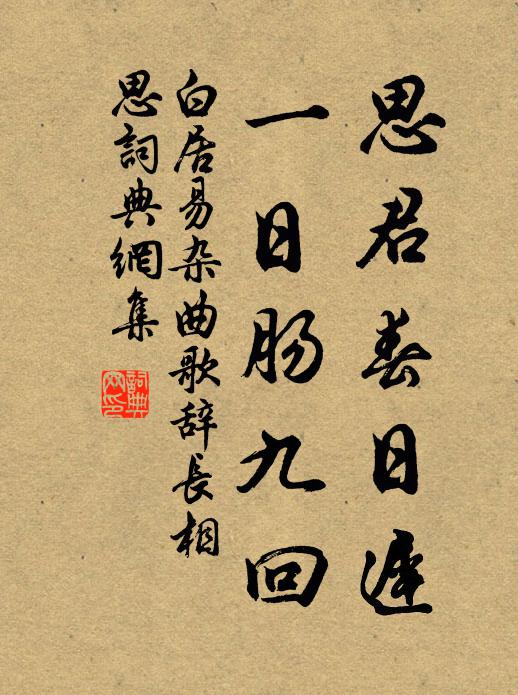 思君春日遲
一日肠九回
白居易杂曲歌辞長相
思詞典網集
詞典
网印